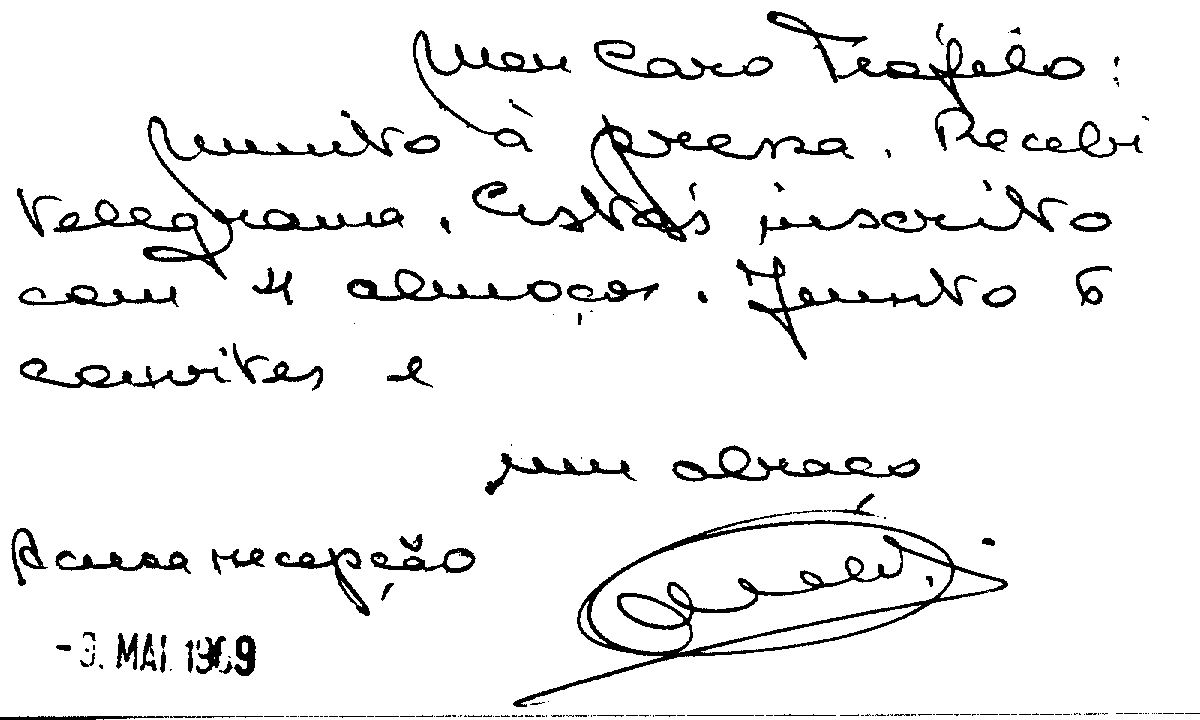 Meu Caro Teófilo:
Muito à pressa. Recebi
telegrama. Estás inscrito
com 4 almoços. Junto 6
convites e
um abraço
Acusa recepção
-9. MAI. 1969